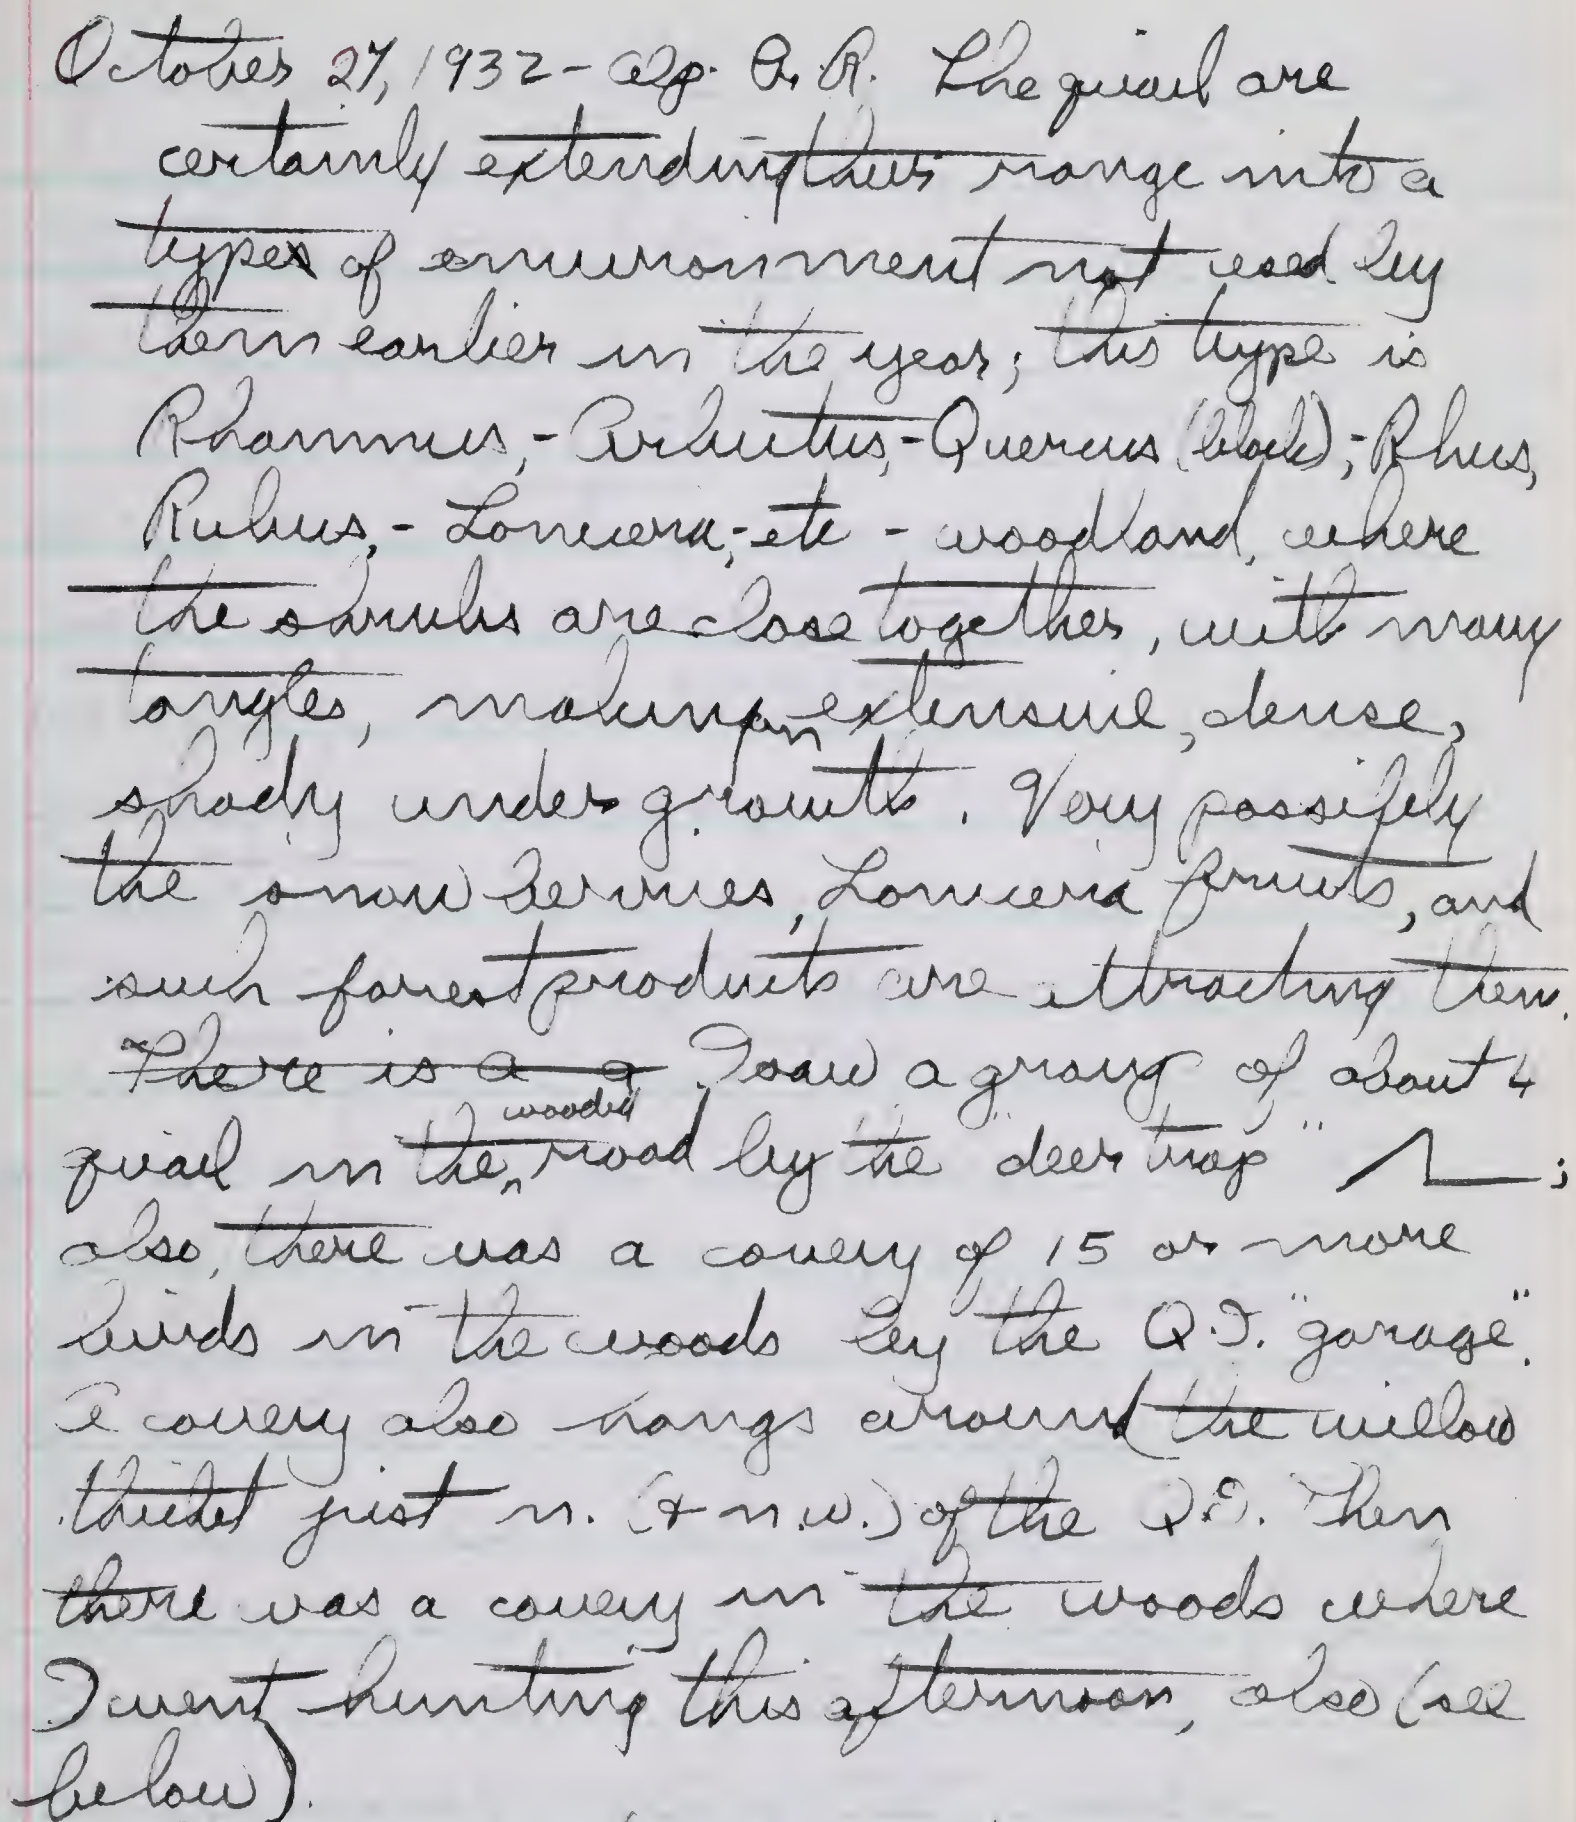 October 27, 1932 - A. R. The quail are
certainly extending their range into a
type of environment not used by
them earlier in the year; this type is
Rhamnus, - Arbutus, - Quercus (black), - Rhus,
Rubus, - Lonicera, - etc - woodland, where
the shrubs are close together, with many
tangles, making an extensive, dense,
shady undergrowth. Very possibly
the snow berries, Lonicera fruits, and
such forest products are attracting them.
There is a a I saw a group of about 4
quail in the wooded road by the "deer trap" ;
also, there was a covey of 15 or more
birds in the woods by the Q.I. "garage".
A covey also hangs around the willow
thicket just n. (& n.w.) of the Q.I. Then
there was a covey in the woods where
I went hunting this afternoon, also (see
below).